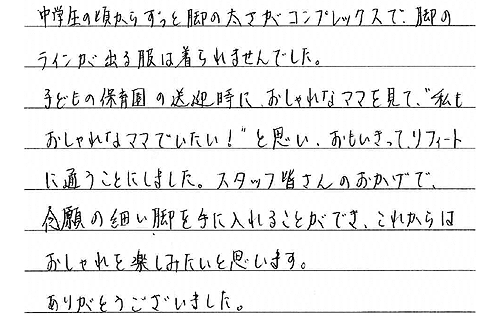 中学生の頃からずっと脚の太さがコンプレックスで、脚の
ラインが出る服は着られませんでした。
子どもの保育園の送迎時に、おしゃれなママを見て、"私も
おしゃれなママでいたい！"と思い、おもいきって、リフィート
に通うことにしました。スタッフ皆さんのおかげで、
念願の細い脚を手に入れることができ、これからは
おしゃれを楽しみたいと思います。
ありがとうございました。